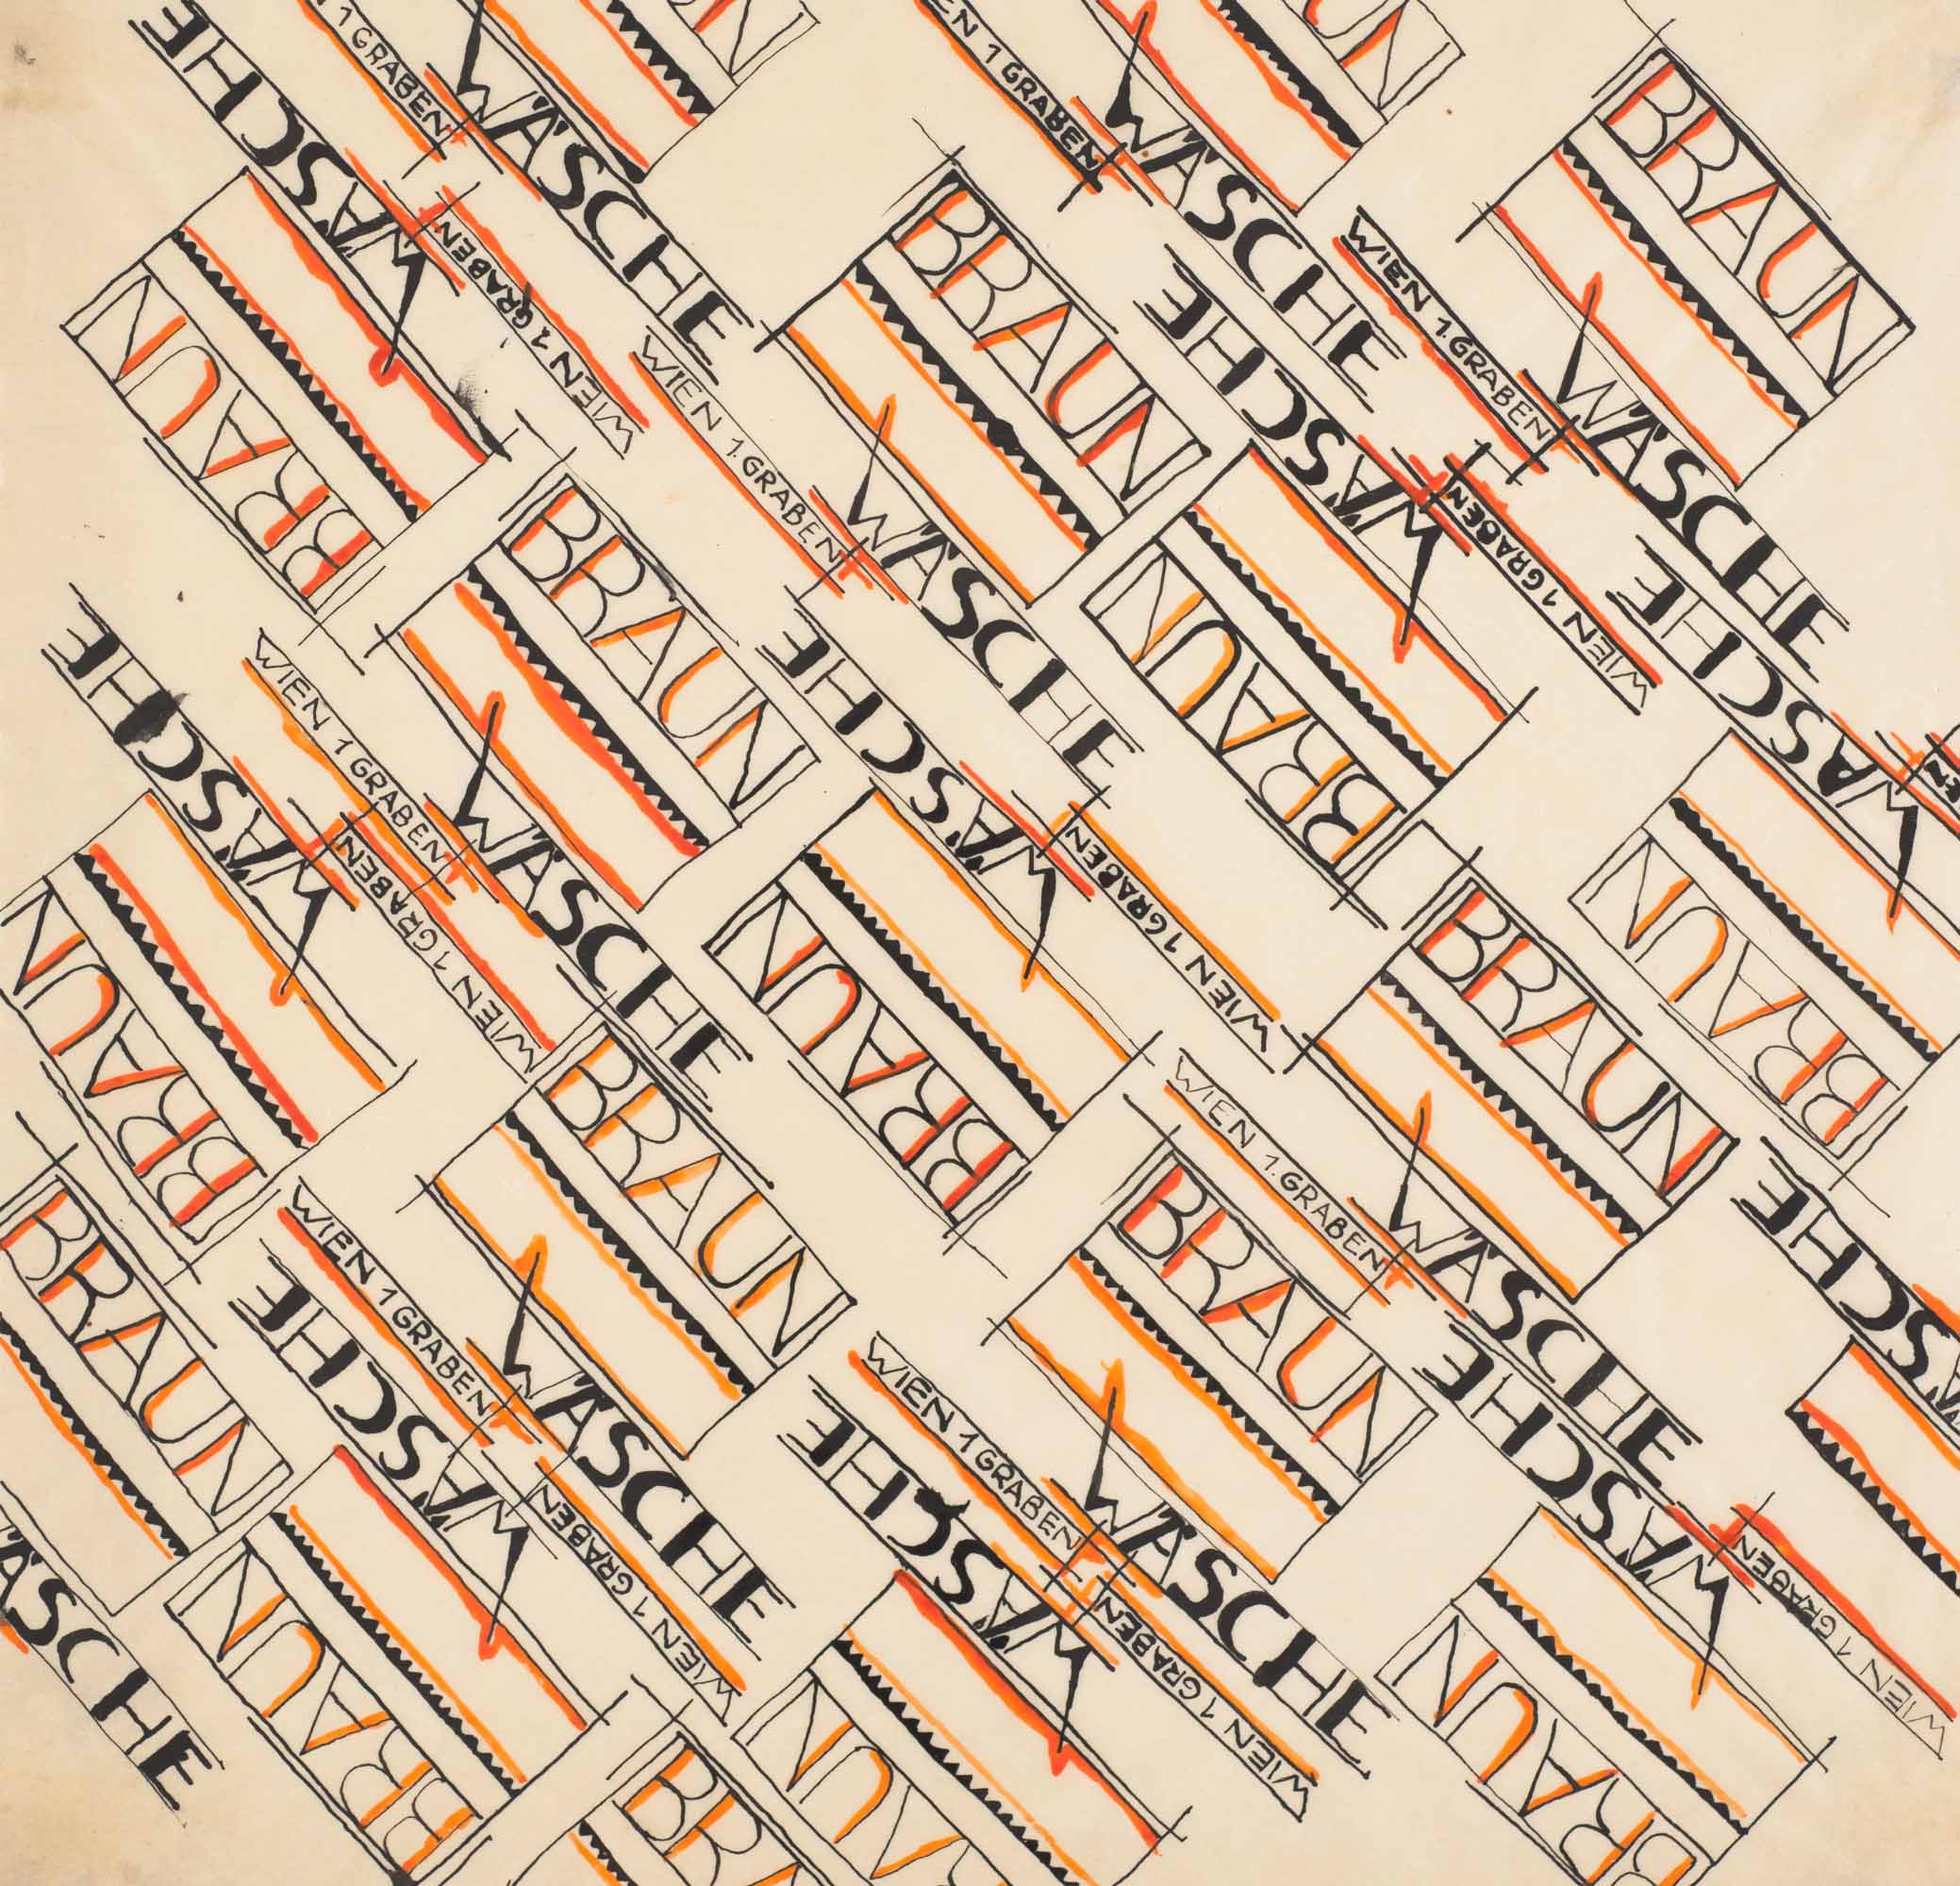 N
WÄSCHE
1 GRABEN
UN
WÄSCHE
EN 1 GRABEN
BRAUN
WÄSCHE
WIEN 1.GRABEN
WIEN 1 GRABEN
WÄSCHE
BRAUN
BRAUN
WÄSCHE
WIEN 1.GRABEN
WIEN 1 GRABEN
WÄSCHE
BRAUN
BRAUN
WÄSCHE
WIEN 1 GRABEN
WÄSCHE
BRAUN
WIEN 1 GRABEN
WÄSCHE
BRAUN
WIEN 1 GRABEN
WÄSCHE
BRAUN
BRAUN
WÄSCHE
WIEN 1.GRABEN
BRAUN
WÄSCHE
WIEN 1 GRABEN
BRAUN
WÄSCHE
WIEN 1 GRABEN
BRAUN
ÄSCHE
WIEN 1 GRABEN
WÄSCHE
BRAUN
WIEN 1 GRABEN
WÄSCHE
AUN
WIEN 1 GRABEN
WÄSCHE
BRAUN
ÄSCHE
BRA